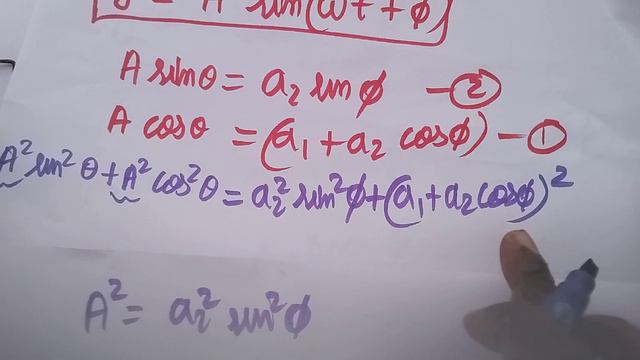 y = A sin(ωt + ϕ)
A sinθ = a₂ sin ϕ - ②
A cosθ = (a₁ + a₂ cosϕ) - ①
A² sin² θ + A² cos² θ = a₂² sin² ϕ + (a₁ + a₂ cosϕ)²
A² = a₂² sin² ϕ